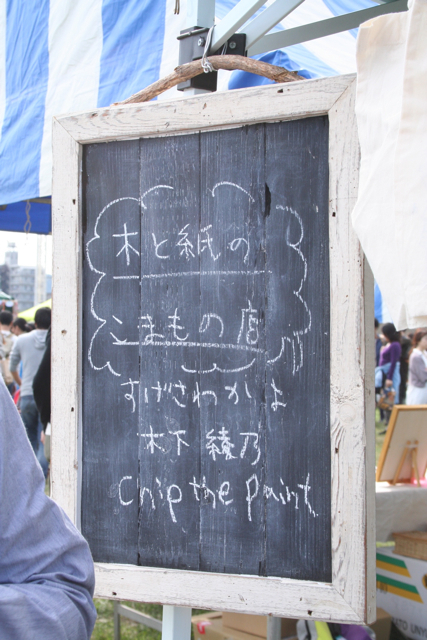 木と紙の
こまもの店
すげさわかよ
木下 綾乃
Chip the paint